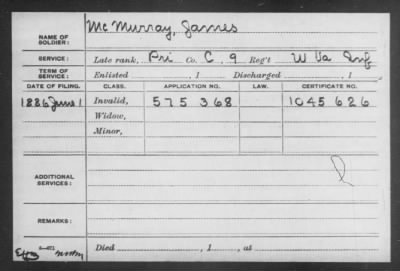 NAME OF SOLDIER: Mc Murray, James
SERVICE: Late rank, Pri Co. C, 9 Reg't W Va Inf
TERM OF SERVICE: Enlisted , 1 Discharged , 1
DATE OF FILING. CLASS. APPLICATION NO. LAW. CERTIFICATE NO.
1886 June 1 Invalid, 575 368 1045 626
Widow,
Minor,
ADDITIONAL SERVICES:
REMARKS:
Died , 1 , at